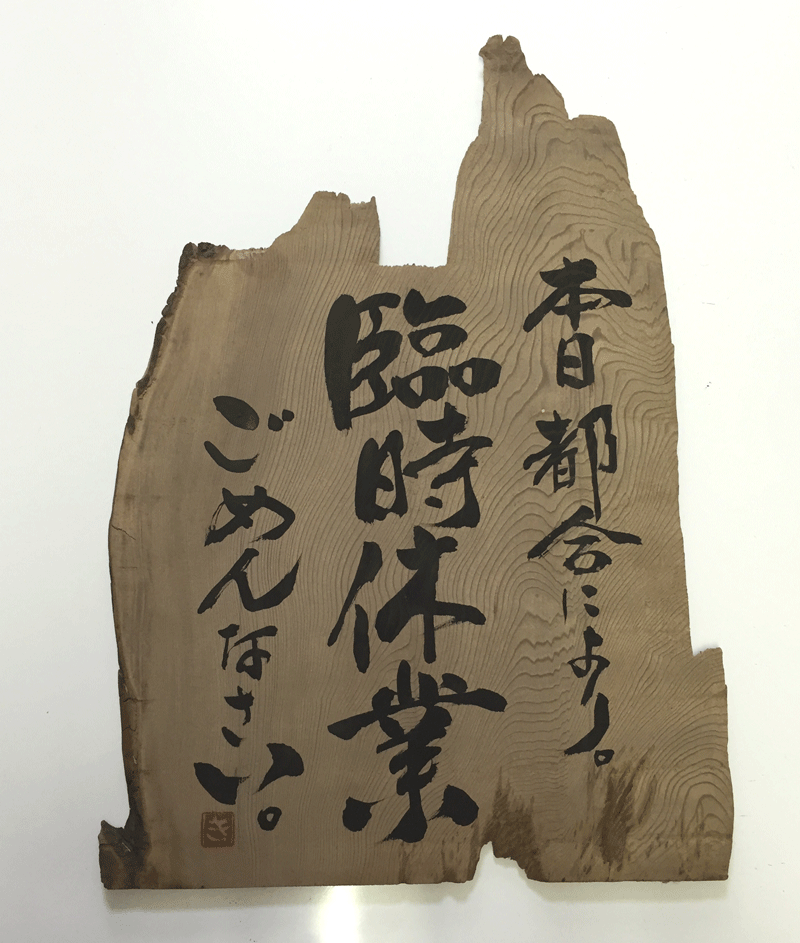 本日都合により。
臨時休業
ごめんなさい。
き